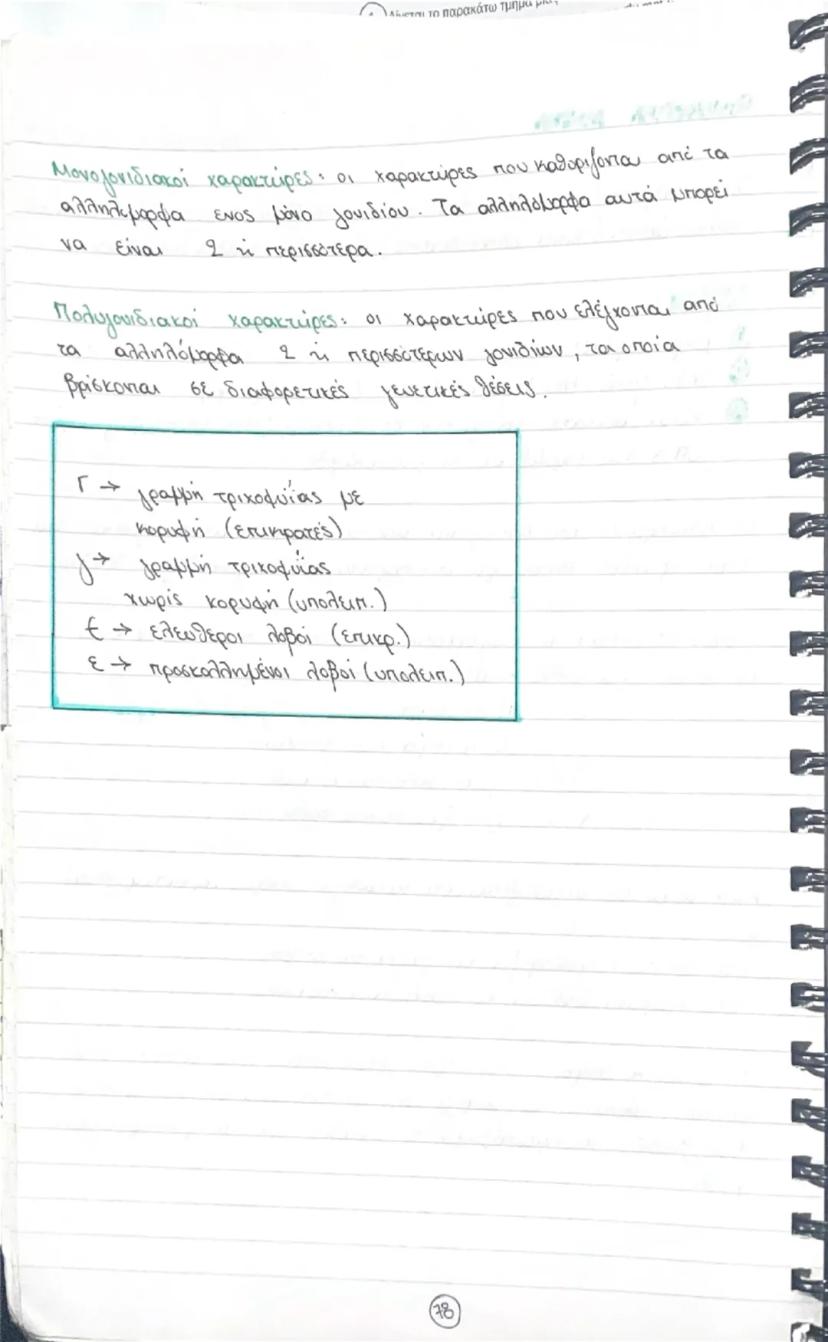 Δίνεται το παρακάτω τμήμα
Μονογονιδιακοί χαρακτήρες: οι χαρακτήρες που καθορίζονται από τα
αλληλόμορφα ενος μόνο γονιδίου. Τα αλληλόμορφα αυτά μπορεί
να είναι 2 ή περισσότερα.
Πολυγονιδιακοί χαρακτήρες: οι χαρακτήρες που ελέγχονται από
τα αλληλόμορφα 2 ή περισσότερων γονιδίων, τα οποία
βρίσκονται σε διαφορετικές γενετικές θέσεις.
Γ → γραμμή τριχοφυΐας με
κορυφή (επικρατές)
γ → γραμμή τριχοφυΐας
χωρίς κορυφή (υπολειπ.)
Ε → ελεύθεροι λοβοί (επικρ.)
ε → προσκολλημένοι λοβοί (υπολειπ.)
78